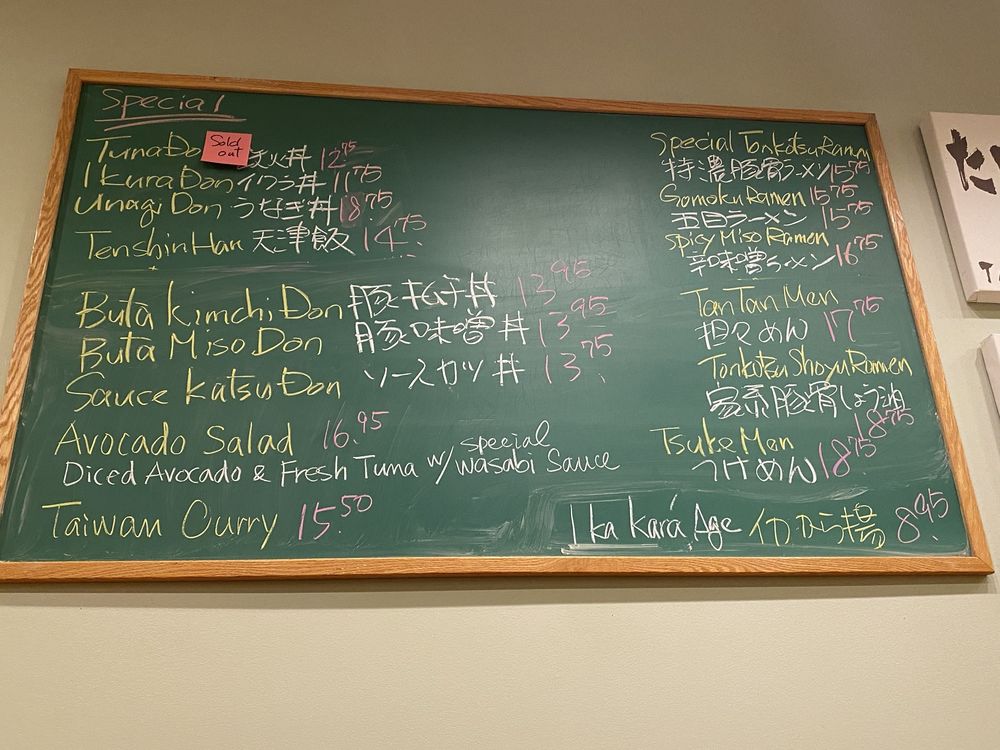 Special
Tuna Do Sold out 鉄火丼 12.75
Ikura Don イクラ丼 11.75
Unagi Don うなぎ丼 18.75
Tenshin Han 天津飯 14.75
Buta Kimchi Don 豚キムチ丼 13.95
Buta Miso Don 豚味噌丼 13.95
Sauce Katsu Don ソースカツ丼 13.75
Avocado Salad 16.95
Diced Avocado & Fresh Tuna w/ special wasabi Sauce
Taiwan Curry 15.50
Special Tonkotsu Ramen
特濃豚骨ラーメン 15.75
Gomoku Ramen 15.75
五目ラーメン 15.75
Spicy Miso Ramen
辛味噌らーメン 16.75
Tan Tan Men
担々めん 17.75
Tonkotsu Shoyu Ramen
家系豚骨しょう油
18.75
Tsuke Men
つけめん 18.75
Ika Kara Age イカから揚 8.95
た